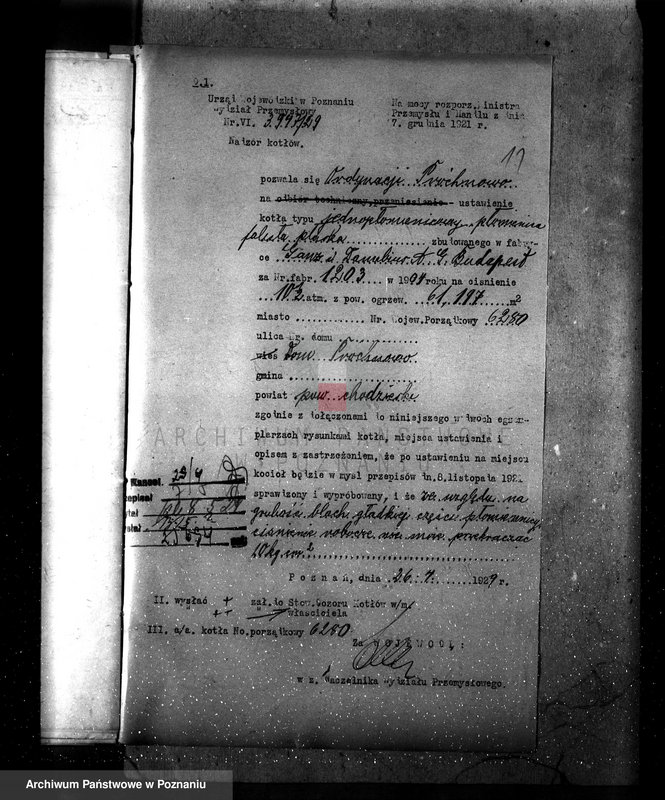 Urząd Wojewódzki w Poznaniu
Wydział Przemysłowy
Nr.VI. 3997/29
Nadzór kotłów.
Na mocy rozporz. Ministra
Przemysłu i Handlu z dnia
7. grudnia 1921 r.
pozwala się Ordynacji
na odbiór techniczny, przeniesienie - ustawienie
kotła typu jednopłomienicowy płomienna
falista płaska zbudowanego w fabry-
ce Ganz Danubius A. G. Budapest
za Nr.fabr. 1203 w roku na ciśnienie
10½ atm. z pow. ogrzew. 61,197 m²
miasto ............ Nr. Wojew.Porządkowy 6280
ulica nr. domu ............
wieś Dom.
gmina ............
powiat pow. chodzieski
zgodnie z dołączonemi do niniejszego w dwóch egzem-
plarzach rysunkami kotła, miejsca ustawienia i
opisem z zastrzeżeniem, że po ustawieniu na miejscu
kocioł będzie w myśl przepisów dn.8.listopada 1921
sprawdzony i wypróbowany, i że ze względu na
grubość blach gładkiej części płomienicy
ciśnienie robocze nie może przekraczać
10 kg/cm²
Poznań, dnia 26. 7. 1929 r.
II. wysłać + zał. do Stow. Dozoru Kotłów w/m
właściciela
III. a/a. kotła No.porządkowy 6280
Za WOJEWODĘ:
w z. Naczelnika Wydziału Przemysłowego
ARCHIWUM PAŃSTWOWE
W POZNANIU
Archiwum Państwowe w Poznaniu